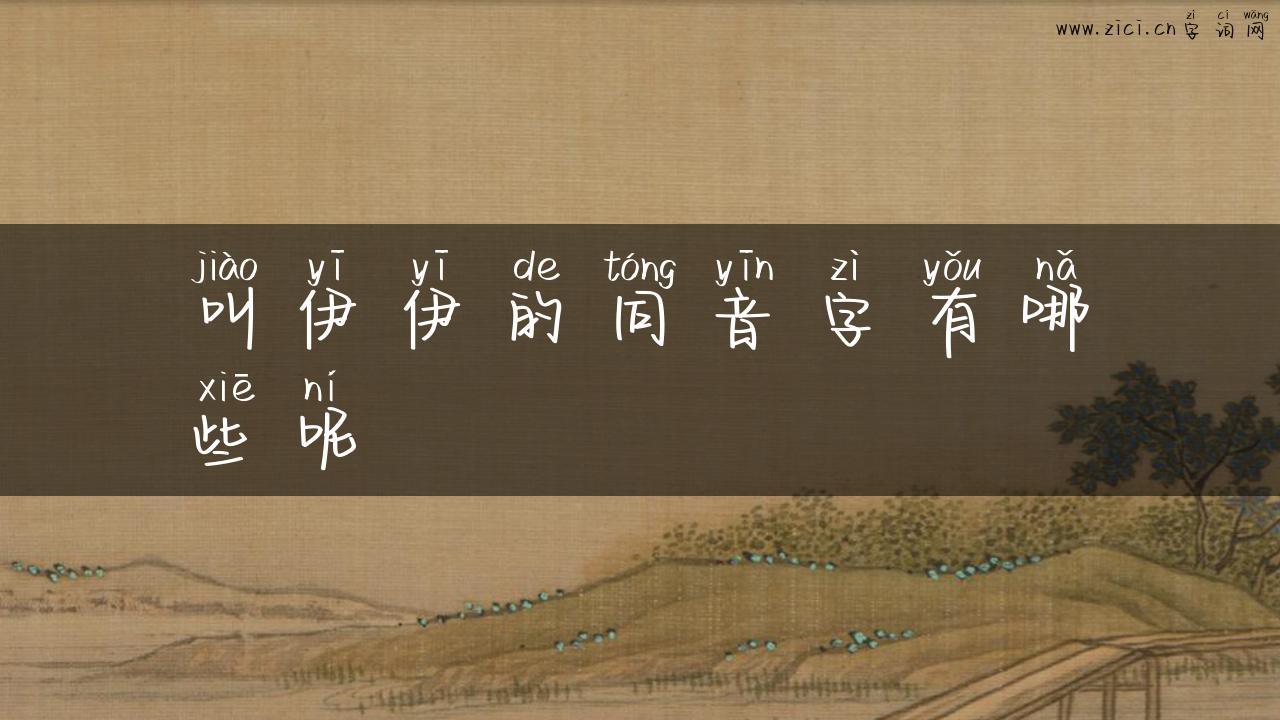 zì cí wǎng
www.zici.cn字词网
jiào yī yī de tóng yīn zì yǒu nǎ
叫伊伊的同音字有哪
xiē ní
些呢